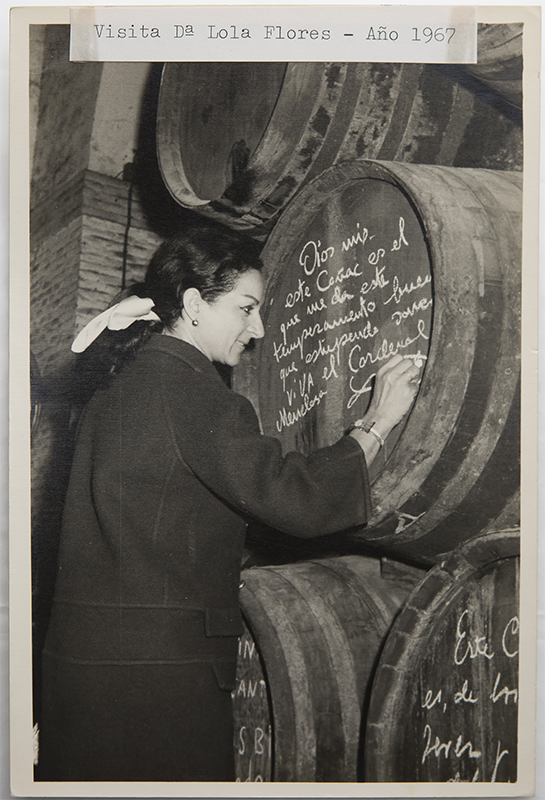 Visita Dª Lola Flores - Año 1967
Dios mio
este Coñac es el
que me da este
temperamento
que estupendo
ViVA el Cardenal
Mendoza
Este C
es, de los
Jerez y
AN
S B